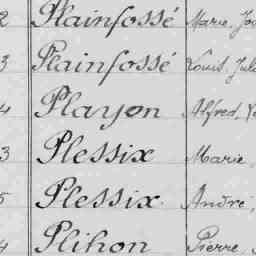 2 Plainfossé Marie, Jo
3 Plainfossé Louis Jul
4 Playon Alfred,
3 Plessix Marie,
5 Plessix André,
4 Plihon Pierre,